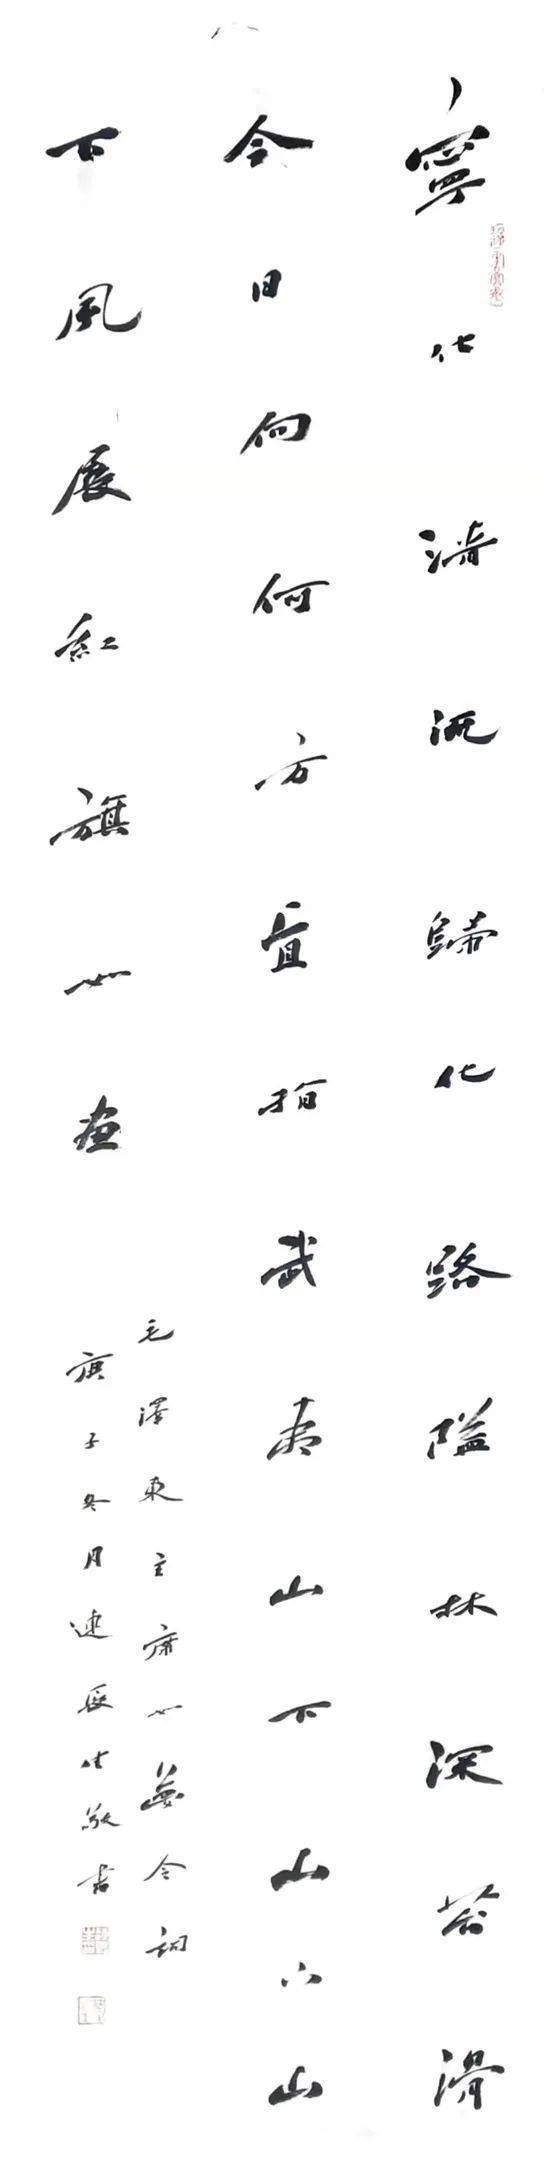 寧化清流歸化路隘林深苔滑
今日向何方直指武夷山下山下山
下風展紅旗如畫
毛澤東主席如夢令詞
庚子冬月連長生敬書